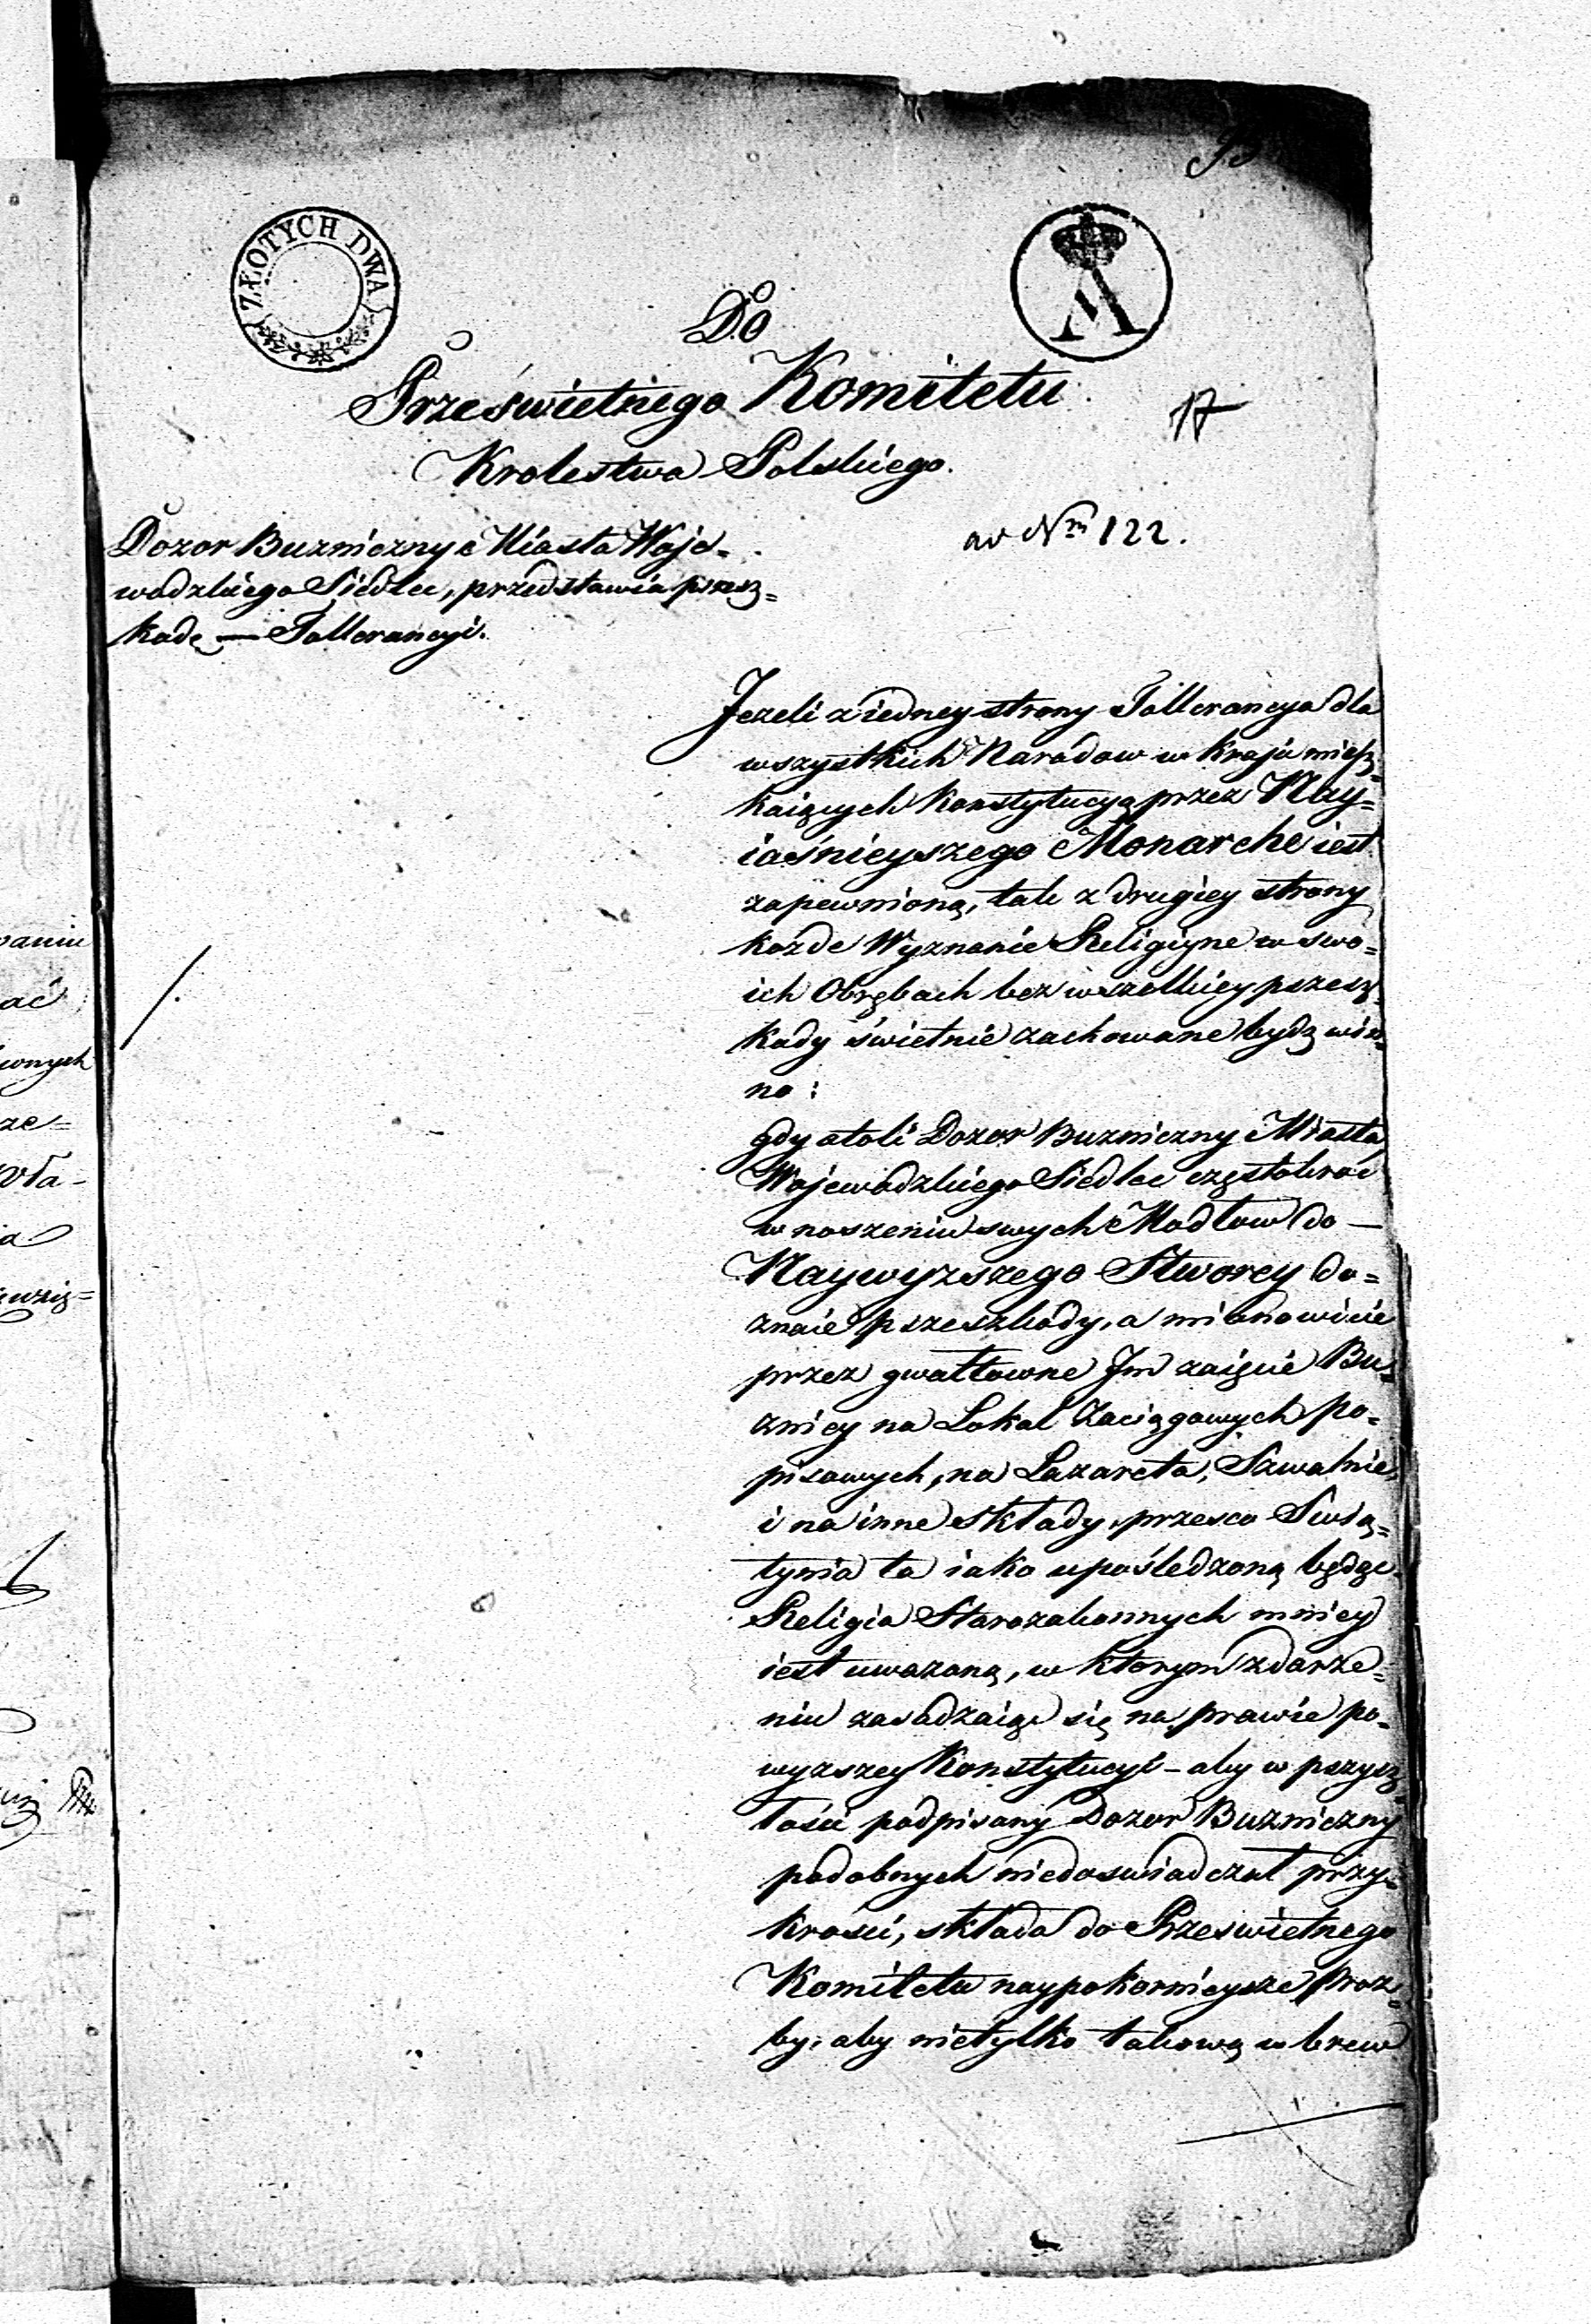 93
ZŁOTYCH DWA
A
Do
Prześwietnego Komitetu
17
Krolestwa Polskiego.
ad Nm 122.
Dozor Buzniczny Miasta Woje-
wodzkiego Siedlec, przedstawia przesz=
kodę — Tollerancyi.
Jezeli z iedney strony Tollerancya dla
wszystkich Narodow w kraju miesz=
kaiących Konstytucyą przez Nay=
iaśnieyszego Monarchę iest
zapewnioną, tak z drugiey strony
kozde Wyznanie Religiyne w swo=
ich Obrębach bez wszelkiey pszesz=
kody świetnie zachowane bydz win=
no:
gdy atoli Dozor Buzniczny Miasta
Wojewodzkiego Siedlec częstokroć
w noszeniu swych Modłow do —
Naywyzszego Stworcy do=
znaie pszeszkody, a mianowicie
przez gwałtowne Im zaięcie Bu=
znicy na Lokal Zaciągowych po=
pisowych, na Lazareta, Szwalnie,
i na inne składy, przesco Swią=
tynia ta iako upośledzoną będąc
Religia Starozakonnych mniey
iest uwazaną, w ktorym zdarze=
niu zasadzaiąc się na prawie po=
wyzszey Konstytucyi – aby w pszysz=
łości podpisany Dozor Buzniczny
podobnych niedoswiadczał przy=
krości, składa do Przeswietnego
Komitetu naypokornieysze proz=
by, aby nietylko takową w brew
paniu
ać
wnych
ze=
oła-
ia